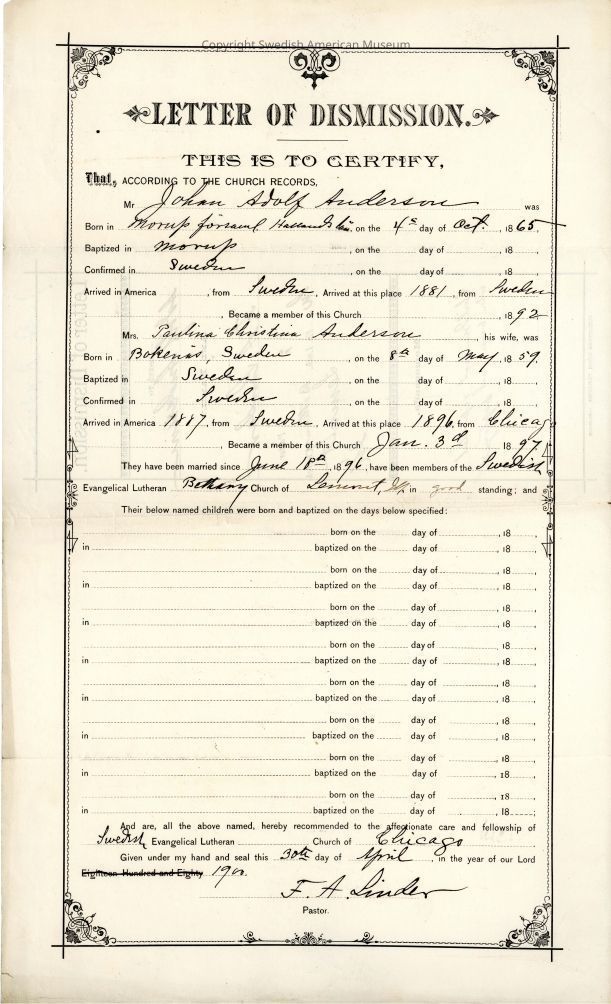 Copyright Swedish American Museum
LETTER OF DISMISSION.
THIS IS TO CERTIFY,
That, ACCORDING TO THE CHURCH RECORDS,
Mr Johan Adolf Anderson was
Born in Morup församl Hallands län, on the 4th day of Oct. , 1865,
Baptized in Morup , on the day of , 18 ,
Confirmed in Sweden , on the day of , 18 ,
Arrived in America , from Sweden , Arrived at this place 1881 , from Sweden
, Became a member of this Church 1892
Mrs. Paulina Christina Anderson , his wife, was
Born in Bokenäs, Sweden , on the 8th day of May , 1859,
Baptized in Sweden , on the day of , 18 ,
Confirmed in Sweden , on the day of , 18 ,
Arrived in America 1887, from Sweden , Arrived at this place 1896, from Chicago
, Became a member of this Church Jan. 3d 1897,
They have been married since June 18th, 1896, have been members of the Swedish
Evangelical Lutheran Bethany Church of Lemont, Ill, in good standing; and
Their below named children were born and baptized on the days below specified:
born on the day of , 18 ,
in baptized on the day of , 18 ,
born on the day of , 18 ,
in baptized on the day of , 18 ,
born on the day of , 18 ,
in baptized on the day of , 18 ,
born on the day of , 18 ,
in baptized on the day of , 18 ,
born on the day of , 18 ,
in baptized on the day of , 18 ,
born on the day of , 18 ,
in baptized on the day of , 18 ,
born on the day of , 18 ,
in baptized on the day of , 18 ,
born on the day of , 18 ,
in baptized on the day of , 18 ;
And are, all the above named, hereby recommended to the affectionate care and fellowship of
Swedish Evangelical Lutheran Church of Chicago
Given under my hand and seal this 30th day of April , in the year of our Lord
Eighteen Hundred and Eighty 1900.
F. A. Linder
Pastor.